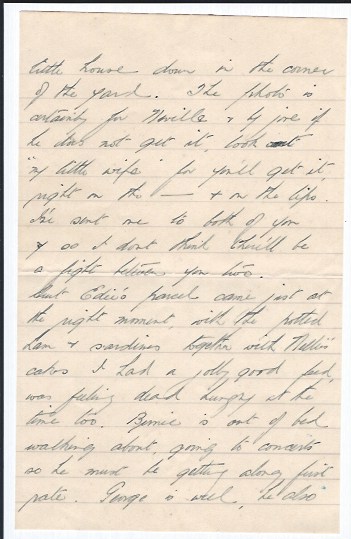 little house down in the corner
of the yard. The photo is
certainly for Neville & by jove if
he does not get it, look out
"my little wife" for you'll get it,
right on the — & on the lips.
I've sent one to both of you
& so I dont think there'll be
a fight between you two.
Aunt Edie's parcel came just at
the right moment, with the potted
ham & sardines together with Nellie's
cakes I had a jolly good feed,
was feeling dead hungry at the
time too. Bernie is out of bed
walking about, going to concerts
so he must be getting along first
rate. George is well, he also